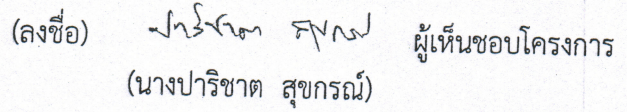 (ลงชื่อ) ปาริชาต สุขกรณ์ ผู้เห็นชอบโครงการ
(นางปาริชาต สุขกรณ์)